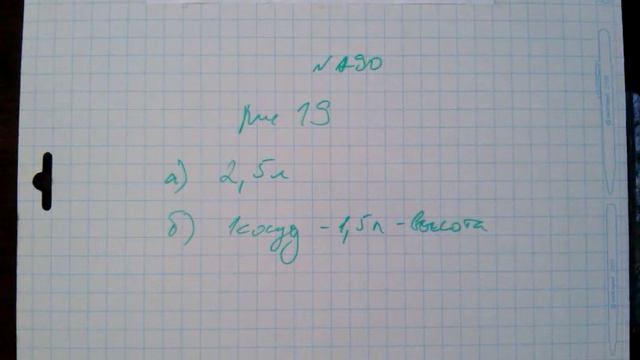 N 190
рис 19
а) 2,5л
б) 1 сосуд - 1,5л - высота